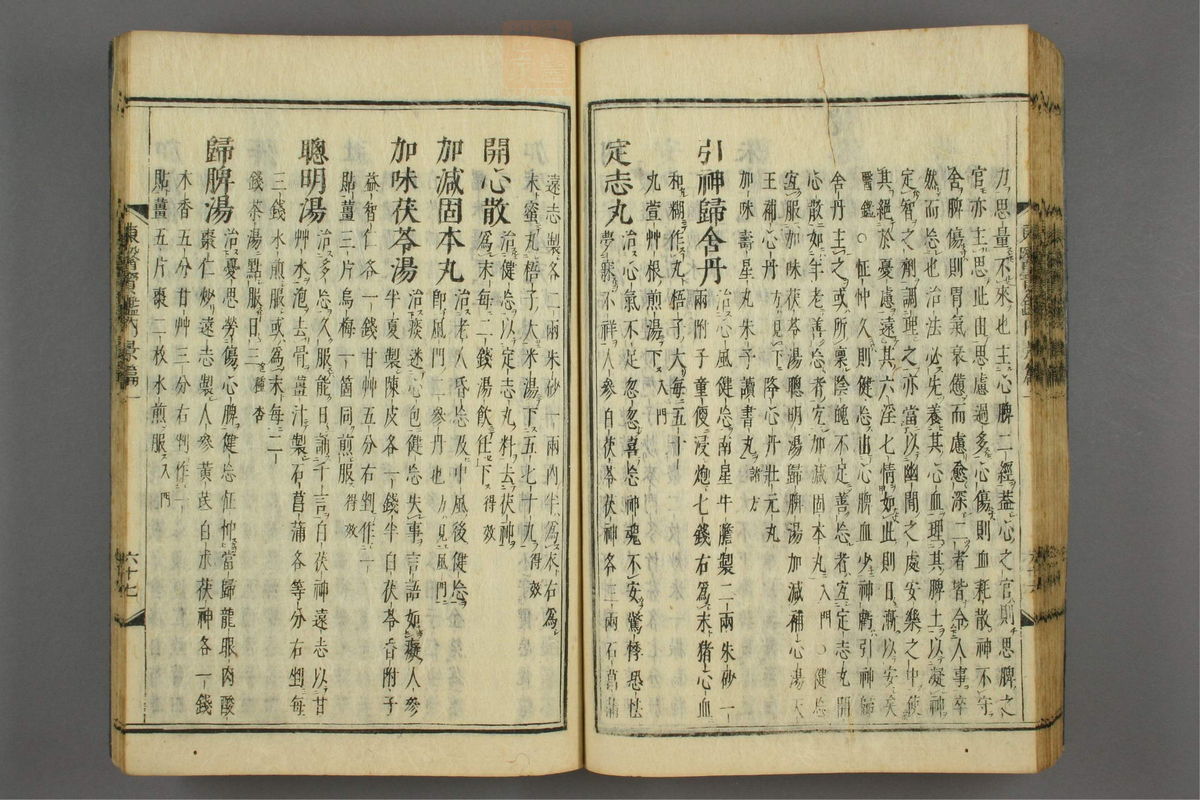 力思量不來也主心脾二經蓋心之官則思脾之
官亦主思此由思慮過多心傷則血耗散神不守
舍脾傷則胃氣衰憊而慮愈深二者皆令人事卒
然而忘也治法必先養其心血理其脾土以凝神
定智之劑調理之亦當以幽閒之處安樂之中使
其絕於憂慮遠其六淫七情如此則日漸以安矣
醫鑑○怔忡久則健忘由心脾血少神虧引神歸
舍丹主之或所稟陰魄不足善忘者宜定志丸開
心散如年老善忘者宜加減固本丸入門○健忘
宜服加味茯苓湯聰明湯歸脾湯加減補心湯天
王補心丹方見下降心丹壯元丸
加味壽星丸朱子讀書丸諸方
引神歸舍丹治心風健忘南星牛膽製二兩朱砂一
兩附子童便浸炮七錢右爲末猪心血
和糊作丸梧子大每五十
丸萱艸根煎湯下入門
定志丸治心氣不足忽忽喜忘神魂不安驚悸恐怯
夢寐不祥人參白茯苓茯神各三兩石菖蒲
遠志製各二兩朱砂一兩內半爲衣右爲
末蜜丸梧子大米湯下五七十丸得效
開心散治健忘以定志丸料去茯神
爲末每二錢湯飲任下得效
加減固本丸治老人昏忘及中風後健忘
卽風門二參丹也方見風門
加味茯苓湯治痰迷心包健忘失事言語如癡人參
半夏製陳皮各一錢半白茯苓香附子
益智仁各一錢甘艸五分右剉作一
貼薑三片烏梅一箇同煎服得效
聰明湯治多忘久服能日誦千言白茯神遠志以甘
艸水泡去骨薑汁製石菖蒲各等分右剉每
三錢水煎服或爲末每二
錢茶湯點服日三種杏
歸脾湯治憂思勞傷心脾健忘怔忡當歸龍眼肉酸
棗仁炒遠志製人參黃芪白朮茯神各一錢
木香五分甘艸三分右剉作一
貼薑五片棗二枚水煎服入門
東醫寶鑑內景編一
六十七